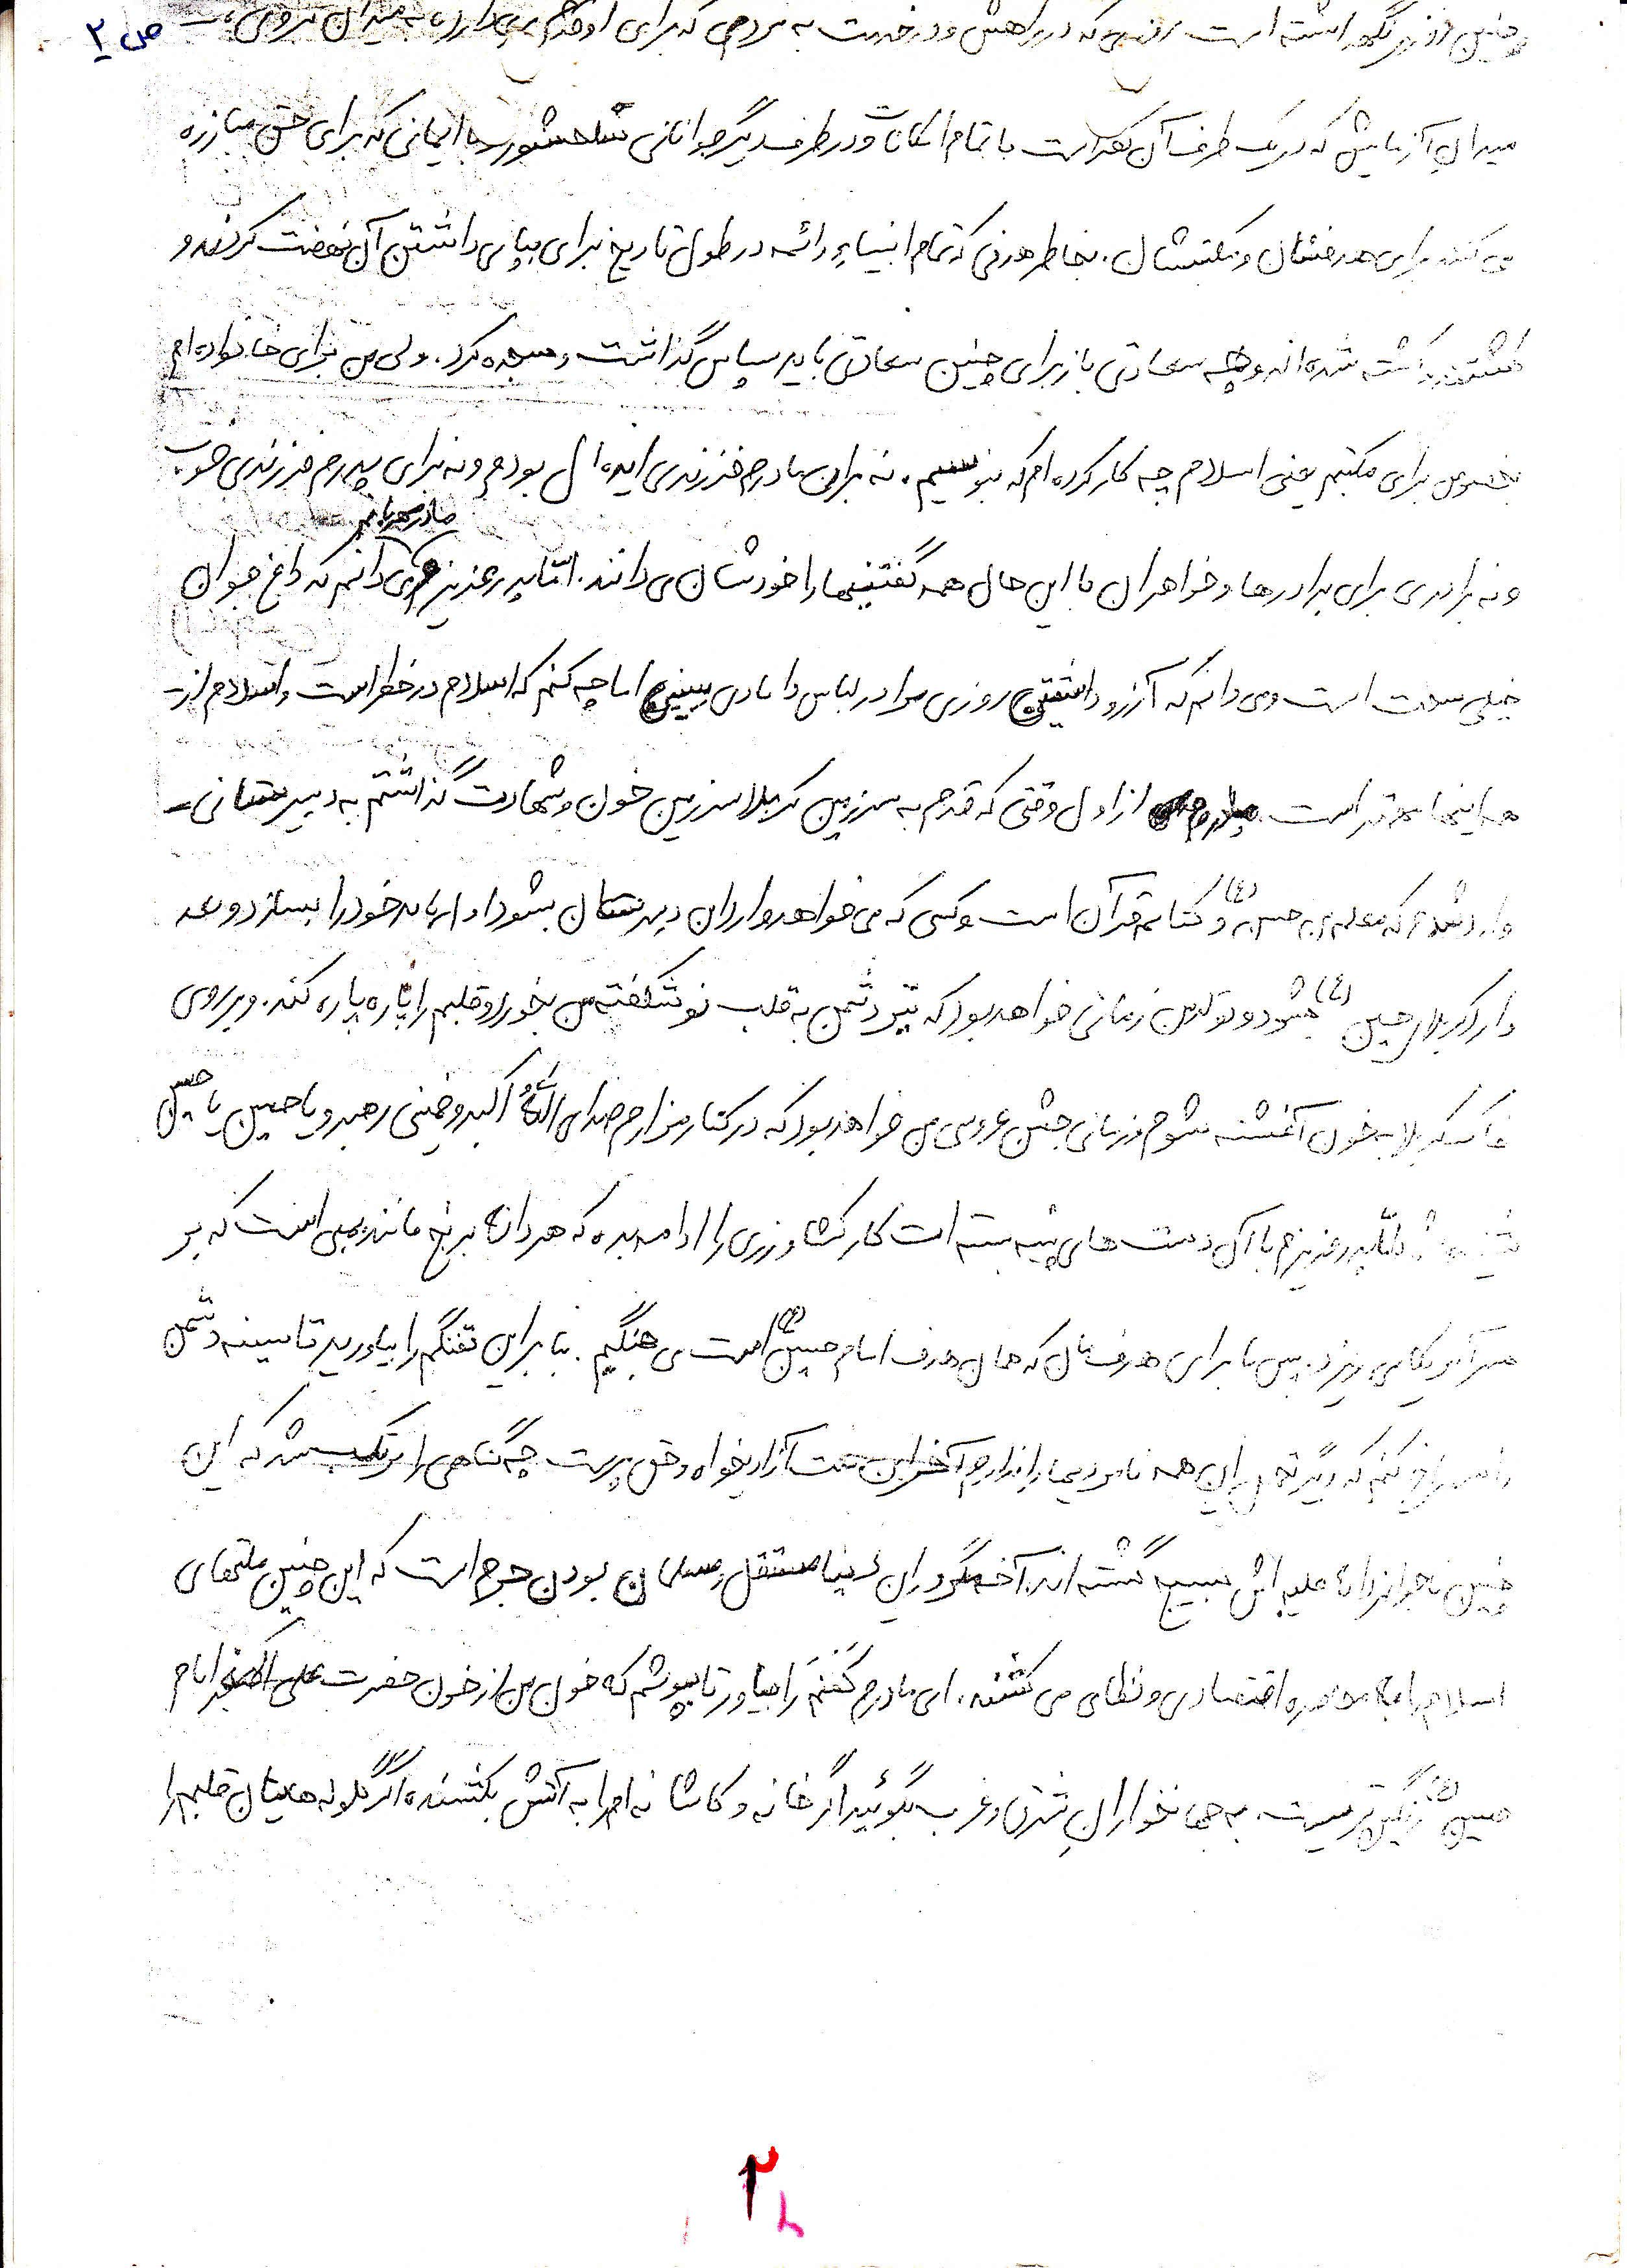 ص ۲
چنین روزی نگهداشته است روزی که در راهش و در خدمت به مردمی که برای او قدم برمیدارند به میدان بروی،
میدان آزمایش که در یک طرف آن کفر است با تمام امکانات و در طرف دیگر جوانانی سلحشور با ایمانی که برای حق مبارزه
می کنند برای هدفشان و مکتبشان. بخاطر هدفی که تمام انبیاء و ائمه در طول تاریخ برای بپای داشتن آن نهضت کردند و
کشتند و کشته شده اند و چه سعادتی باز برای چنین سعادتی باید سپاس گذاشت و سجده کرد. ولی من برای خانواده ام
بخصوص برای مکتبم یعنی اسلام چه کار کرده ام که بنویسیم. نه برای مادرم فرزندی ایده ال بودم و نه برای پدرم فرزندی خوب
و نه برادری برای برادرها و خواهران با این حال همه گفتنیها را خودشان می دانند. امّا پدر عزیزم و مادر مهربانم می دانم که داغ جوان
خیلی سخت است و می دانم که آرزو داشتین روزی مرا در لباس دامادی ببینین اما چه کنم که اسلام در خطر است و اسلام از
همه اینها مهمتر است. از اول وقتی که قدم به سرزمین کربلا سرزمین خون و شهادت گذاشتم به دبیرستانی
وارد شدم که معلم من حسین (ع) و کتابم قرآن است و کسی که می خواهد وارد این دبیرستان بشود اول باید خود را بسازد و بعد
وارد کربلای حسین (ع) بشود و تولد من زمانی خواهد بود که تیر دشمن به قلب نوشکفته من بخورد و قلبم را پاره پاره کند. و بر روی
خاک کربلا به خون آغشته شوم و زمانی جشن عروسی من خواهد بود که در کنار مزارم صدای اللّهُ اکبر و خمینی رهبر و یا حسین یا حسین
شنیده شود امّا پدر عزیزم با آن دست های پینه بسته ات کار کشاورزی را ادامه بده که هر دانه برنج مانند بمبی است که بر
سر آمریکا می ریزد. پس ما برای هدفمان که همان هدف امام حسین (ع) است می جنگیم. بنا براین تفنگم را بیاورید تا سینه دشمن
را سوراخ کنم که دیگر تحمل این همه نامردیها را ندارم آخر این ملت آزادیخواه و حق پرست چه گناهی را مرتکب شد که این
چنین ناجوانمردانه علیه اش بسیج گشته اند. آخر مگر در این دنیا مستقل و مسلمان بودن جرم است که این چنین ملتهای
اسلام را با محاصره اقتصادی و نظامی می کشند. ای مادرم کَفَنَم را بیاور تا بپوشم که خون من از خون حضرت علی اکبر امام
حسین (ع) رنگین تر نیست. به جهانخواران شرق و غرب بگوئید اگر خانه و کاشانه ام را به آتش بکشند، اگر گلوله هایتان قلبم را
۲
۲